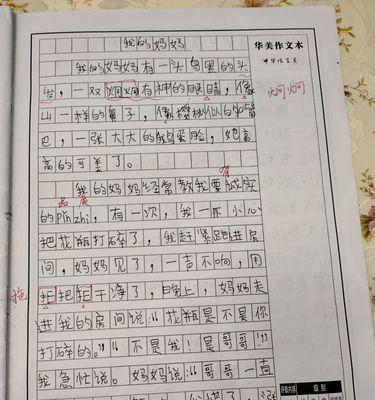 我的妈妈
华美作文本
我的妈妈有一头乌黑的头
发，一双炯炯有神的眼睛，像
炯炯
山一样的鼻子，像樱桃似的嘴
巴，一张大大的脸，她
高的可美了。
有
我的妈妈经常教我要诚实
品质
的pinzhi，有一次，我一不小心
把花瓶打碎了，我赶紧跑进房
间，妈妈见了，一声不响，用
拖
拒把拒干净了，晚上，妈妈走
进我的房间说：“花瓶是不是你
打碎的。”“不是我！是哥哥！”
我急忙说。妈妈说：“哥哥一直
评级内容 级别